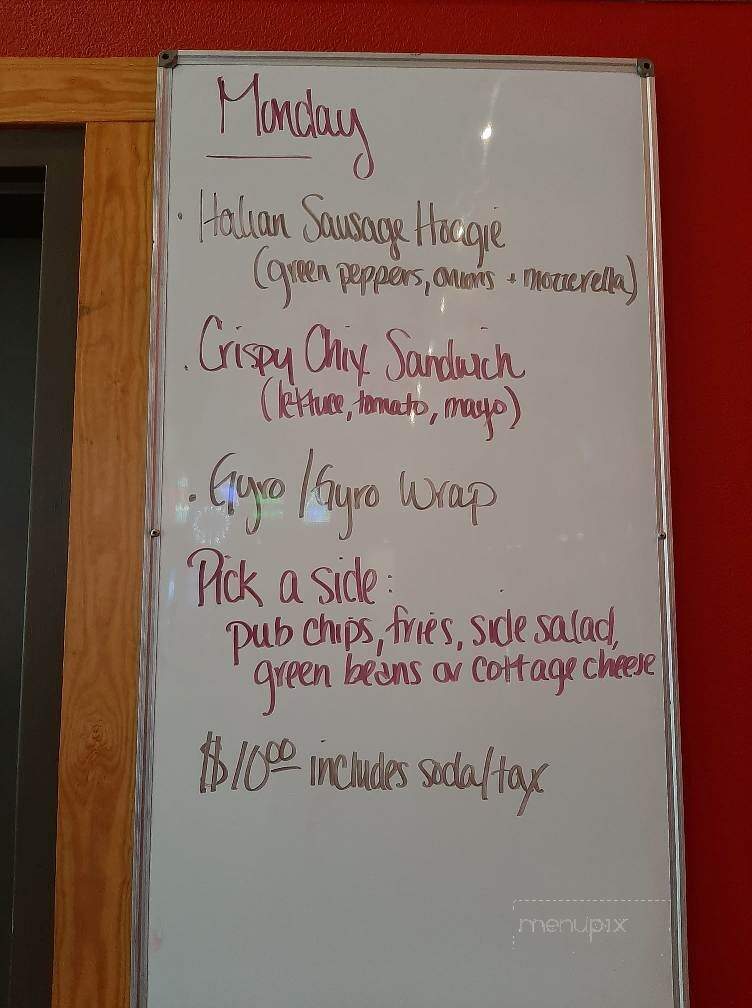 Monday
· Italian Sausage Hoagie
(green peppers, onions + mozzerella)
· Crispy Chix Sandwich
(lettuce, tomato, mayo)
· Gyro / Gyro Wrap
Pick a side:
pub chips, fries, side salad,
green beans or cottage cheese
$10.00 includes soda/tax
menupix